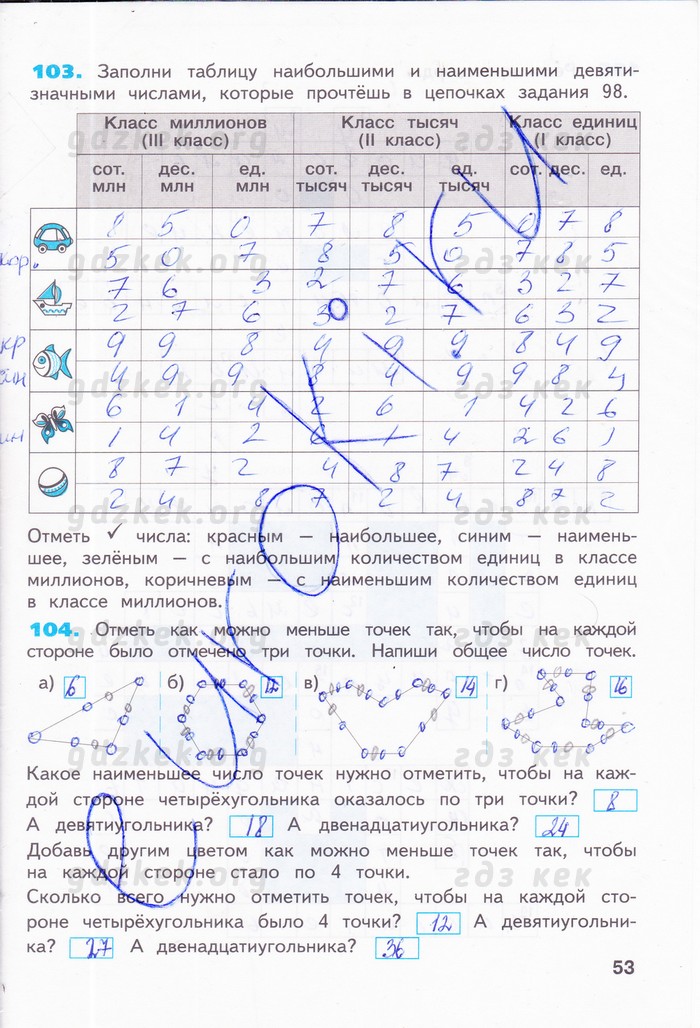 103. Заполни таблицу наибольшими и наименьшими девяти-
значными числами, которые прочтёшь в цепочках задания 98.
Класс миллионов (III класс) Класс тысяч (II класс) Класс единиц (I класс)
сот. млн дес. млн ед. млн сот. тысяч дес. тысяч ед. тысяч сот. дес. ед.
8 5 0 7 8 5 0 7 8
кор. 5 0 7 8 5 0 7 8 5
7 6 3 2 7 6 3 2 7
2 7 6 3 2 7 6 3 2
кр 9 9 8 4 9 9 8 4 9
4 9 9 8 4 9 9 8 4
6 1 4 2 6 1 4 2 6
1 4 2 6 1 4 2 6 1
8 7 2 4 8 7 2 4 8
2 4 8 7 2 4 8 7 2
Отметь ✓ числа: красным — наибольшее, синим — наимень-
шее, зелёным — с наибольшим количеством единиц в классе
миллионов, коричневым — с наименьшим количеством единиц
в классе миллионов.
104. Отметь как можно меньше точек так, чтобы на каждой
стороне было отмечено три точки. Напиши общее число точек.
а) 6 б) 12 в) 14 г) 16
Какое наименьшее число точек нужно отметить, чтобы на каж-
дой стороне четырёхугольника оказалось по три точки? 8
А девятиугольника? 18 А двенадцатиугольника? 24
Добавь другим цветом как можно меньше точек так, чтобы
на каждой стороне стало по 4 точки.
Сколько всего нужно отметить точек, чтобы на каждой сто-
роне четырёхугольника было 4 точки? 12 А девятиугольни-
ка? 27 А двенадцатиугольника? 36
53
gdzkek.org гдз кек
gdzkek.org гдз кек
gdzkek.org гдз кек
gdzkek.org гдз кек
gdzkek.org гдз кек
gdzkek.org гдз кек
gdzkek.org гдз кек